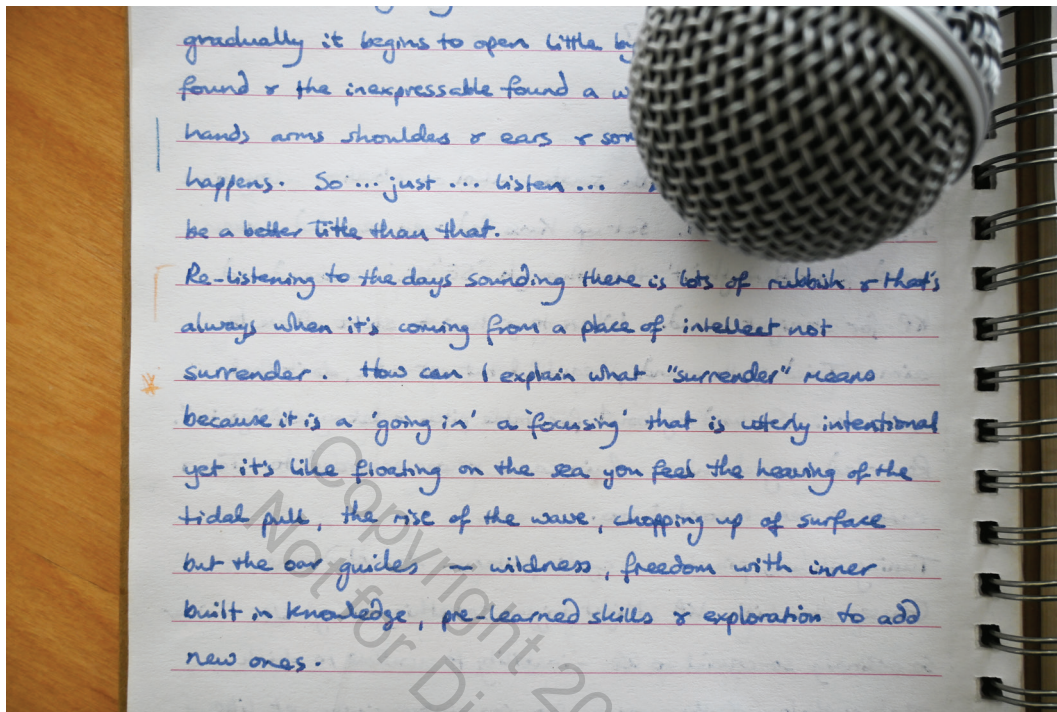 gradually it begins to open little by
found & the inexpressable found a
hands arms shoulders & ears &
happens. So ... just ... listen ...
be a better title than that.
Re-listening to the days sounding there is lots of rubbish & that's
always when it's coming from a place of intellect not
surrender. How can I explain what "surrender" means
because it is a 'going in' a 'focussing' that is utterly intentional
yet it's like floating on the sea, you feel the heaving of the
tidal pull, the rise of the wave, chopping up of surface
but the oar guides — wildness, freedom with inner
built in knowledge, pre-learned skills & exploration to add
new ones.
Copyright 20
Not for Di